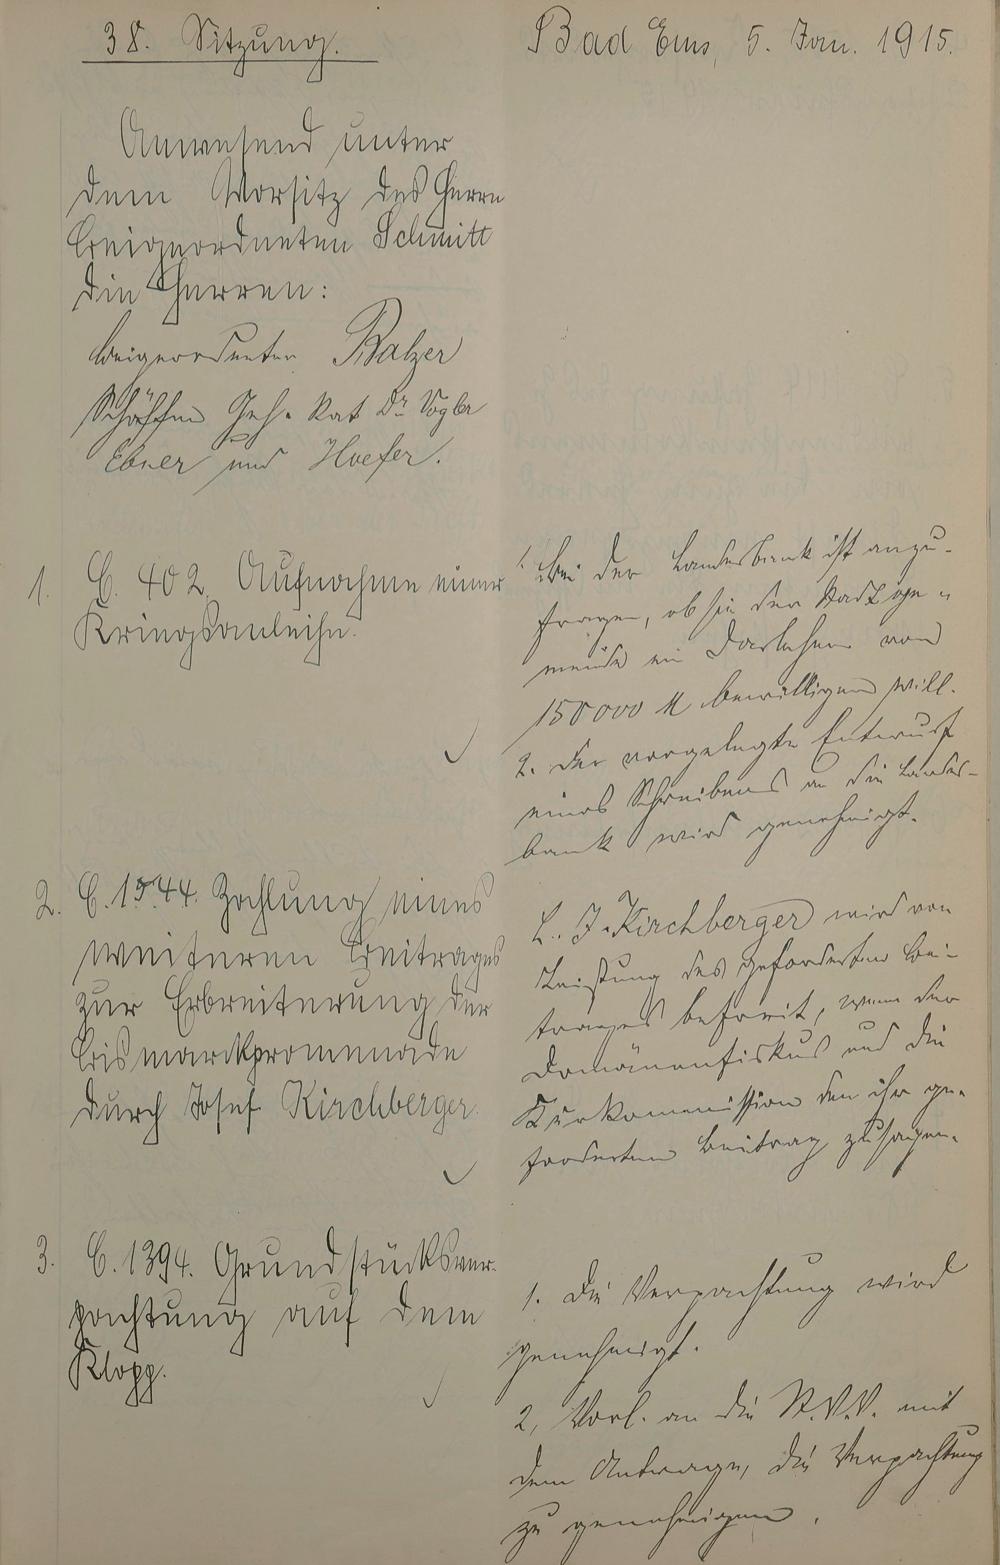 38. Sitzung.
Bad Ems, 5. Jan. 1915.
Anwesend unter
dem Vorsitz des Herrn
Beigeordneten Schmitt
die Herren:
Beigeordneter Balzer
Schöffen Geh. Rat Dr. Vogler
Ebner und Hoefer.
1. C. 402. Aufnahme einer
Kriegsanleihe.
1. Bei der Landesbank ist anzu-
fragen, ob sie der Stadtge-
meinde ein Darlehen von
150000 M bewilligen will.
2. Der vorgelegte Entwurf
eines Schreibens an die Landes-
bank wird genehmigt.
2. C. 1544. Zahlung eines
weiteren Beitrages
zur Erbreiterung der
Bismarckpromenade
durch Josef Kirchberger.
J. Kirchberger wird von
Leistung des geforderten Bei-
trages befreit, wenn der
Domänenfiskus und die
Kurkommission den ihr ge-
forderten Beitrag zusagen.
3. C. 1394. Grundstücksver-
pachtung auf dem
Klopp.
1. Die Verpachtung wird
genehmigt.
2, Vorl. an die St.V.V. mit
dem Antrage, die Verpachtung
zu genehmigen.